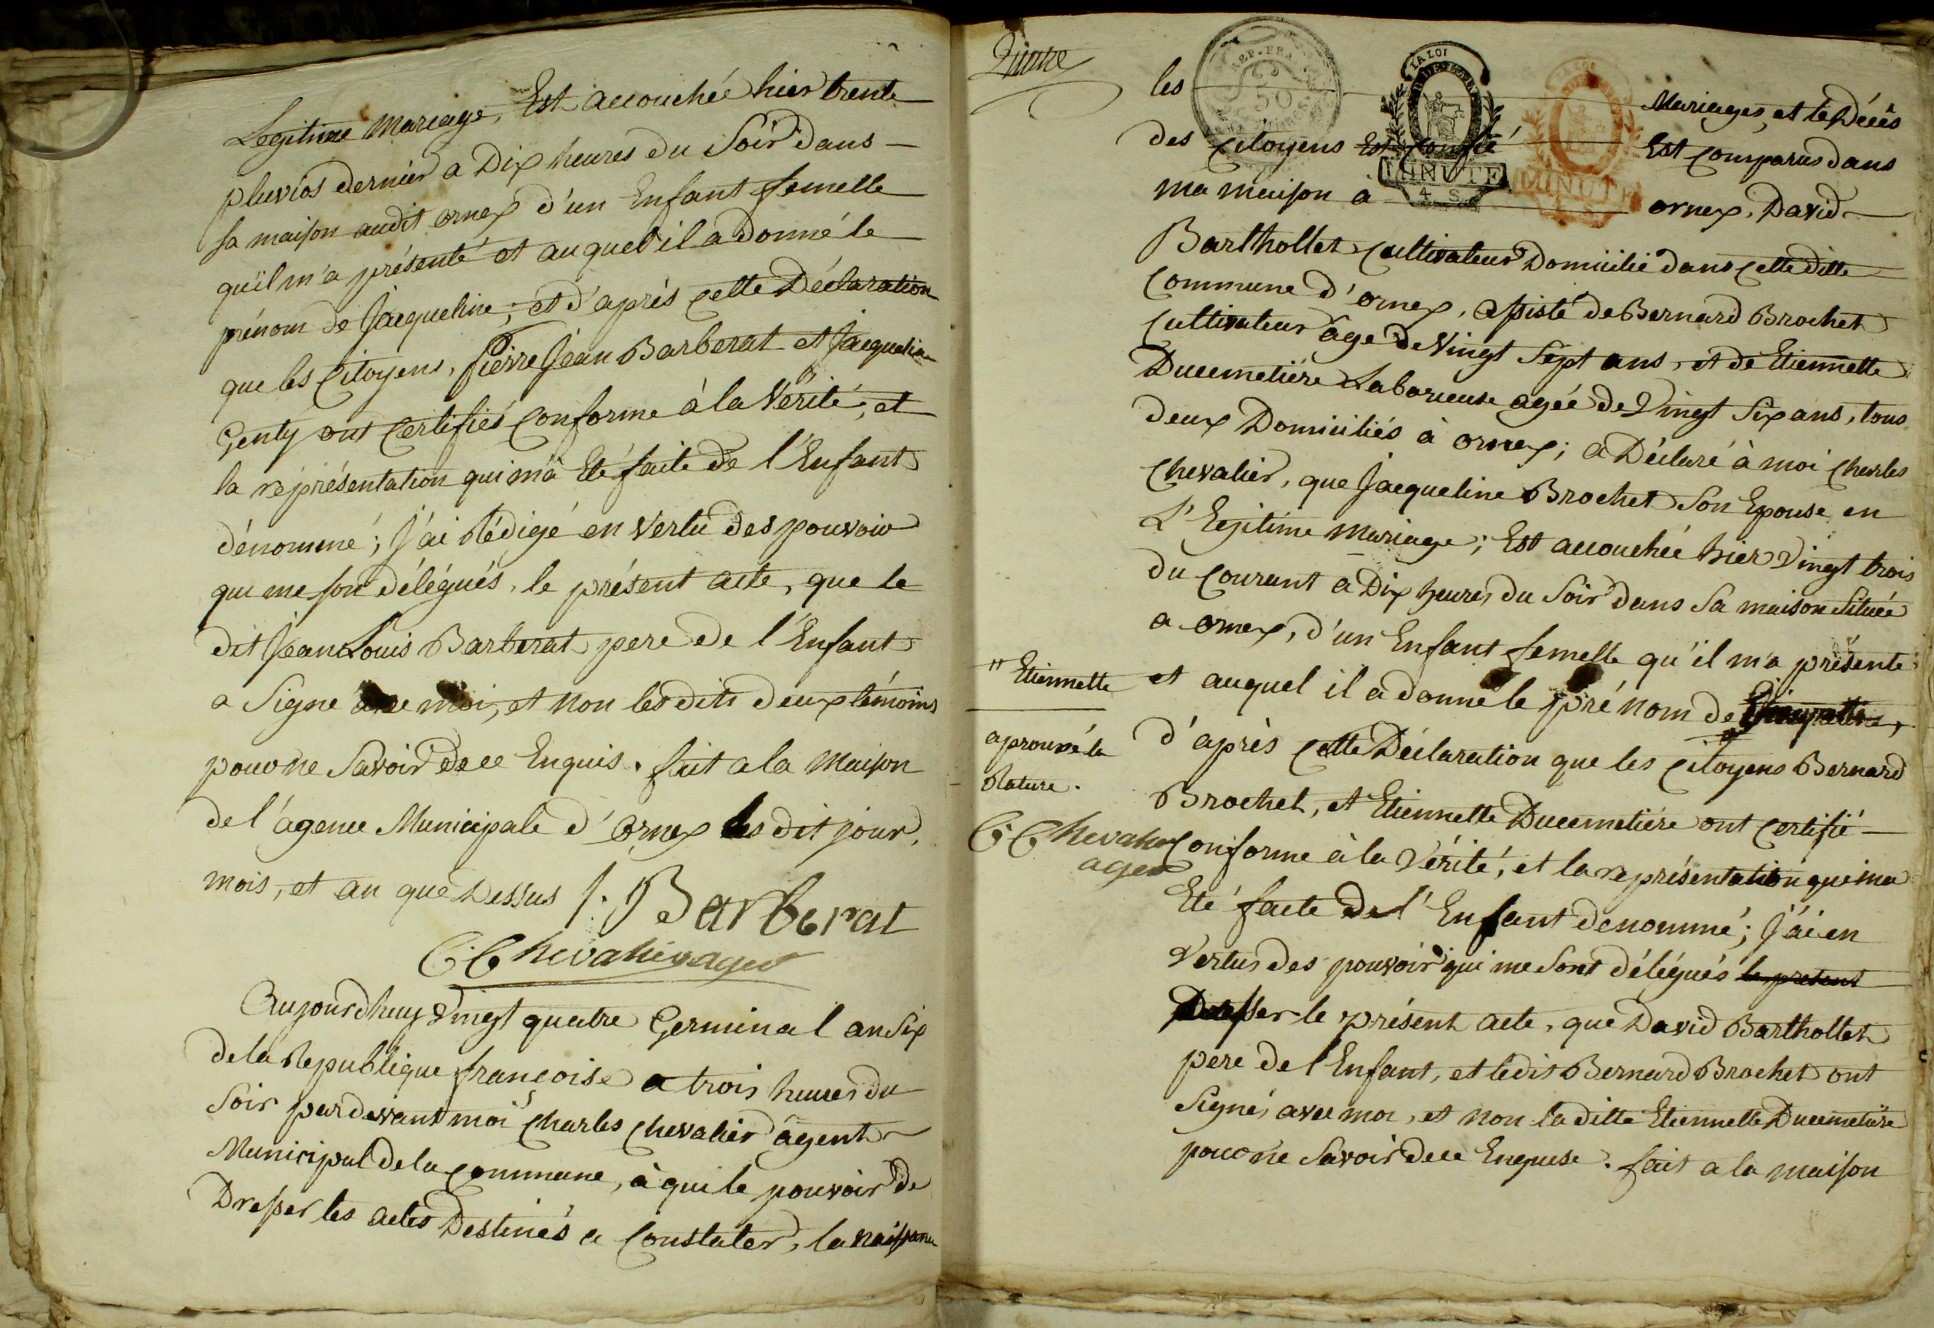 Legitime mariage, Est accouchée hier trente
pluvios dernier a Dix heures du Soir dans
sa maison audit ornex d'un Enfant femelle
qu'il m'a présenté et auquel il a donné le
prénom de Jacqueline; et d'après cette Déclaration
que les Citoyens, Pierre Jean Barberat et Jacqueline
Genty ont Certifiés Conforme à la Vérité, et
la représentation qui m'a Eté faite de l'Enfant
dénommé; J'ai Rédigé en Vertu des pouvoir
qui me son délégués, le présent acte, que le
dit Jean Louis Barberat pere de l'Enfant
a Signe avec moi, et non lesdits deux témoins
pour ne Savoir de ce Enquis. fait a la Maison
de l'agence Municipale d'Ornex les dit jour,
mois, et an que Dessus J. Barberat
C. Chevalier agent
Aujourdhuy Vingt quatre Germinal an Six
de la Republique françoise a trois heures du
Soir pardevant moi Charles Chevalier agent
Municipal de la Commune, à qui le pouvoir de
Dresser les actes Destinés a Constater, la naissance
les Mariages, et le Décès
des Citoyens Est Confié Est Comparus dans
ma maison à ornex, David
Barthollet Cultivateur Domicilié dans Cette ditte
Commune d'ornex, assisté de Bernard Brochet
Cultivateur âge de Vingt Sept ans, et de Etiennette
Ducemetiére Laborieuse agéé de Vingt Six ans, tous
deux Domiciliés à ornex; a Déclaré à moi Charles
Chevalier, que Jacqueline Brochet Son Epouse en
L'Egitime Mariage; Est accouchée hier Vingt trois
du Courant a Dix heures du Soir dans Sa maison Située
a ornex, d'un Enfant femelle qu'il m'a présenté
et auquel il a donné le pré nom de
d'après Cette Déclaration que les Citoyens Bernard
Brochet, et Etiennette Ducemetiére ont Certifié
Conforme à la Vérité, et la représentation qui ma
Eté faite de l'Enfant denommé; J'ai en
Vertus des pouvoir qui me Sont délégués le present
Dresser le présent acte, que David Barthollet
pere de l'Enfant, et ledit Bernard Brochet ont
Signés avec moi, et non la ditte Etiennette Ducemetiére
pour ne Savoir de ce Enquise. fait a la maison
" Etiennette
aprouvé la
Rature.
C. Chevalier
agent
REP. FRA.
50
LA LOI
MINUTE
4 S
MINUTE